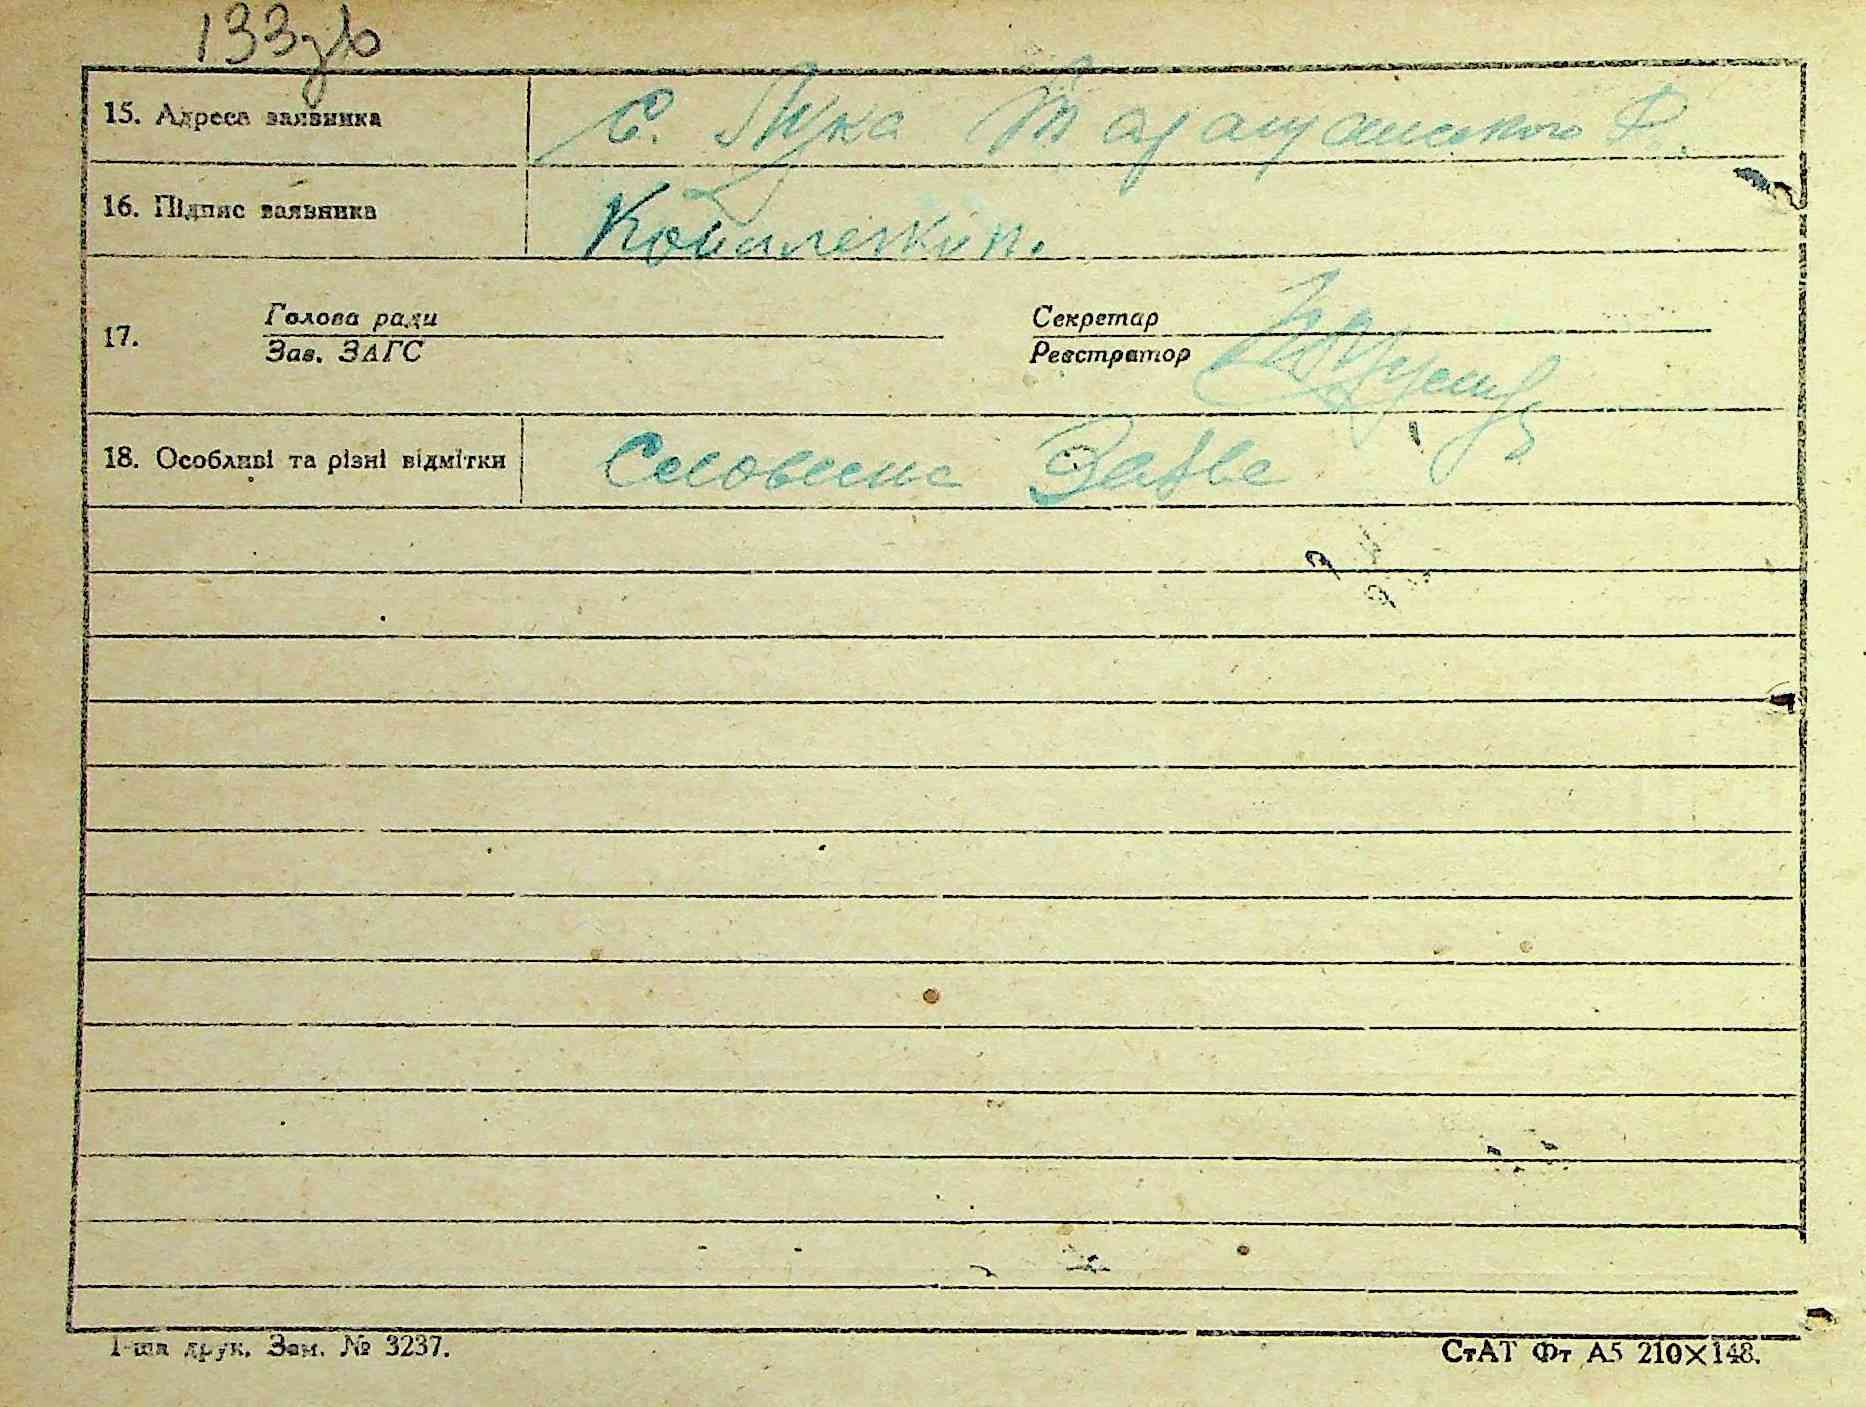 133зв
15. Адреса заявника с. Лука Таращанського р.
16. Підпис заявника
Голова ради Секретар
17.
Зав. ЗАГС Реєстратор
18. Особливі та різні відмітки
1-ша друк. Зам. № 3237. СтАТ Фт А5 210×148.